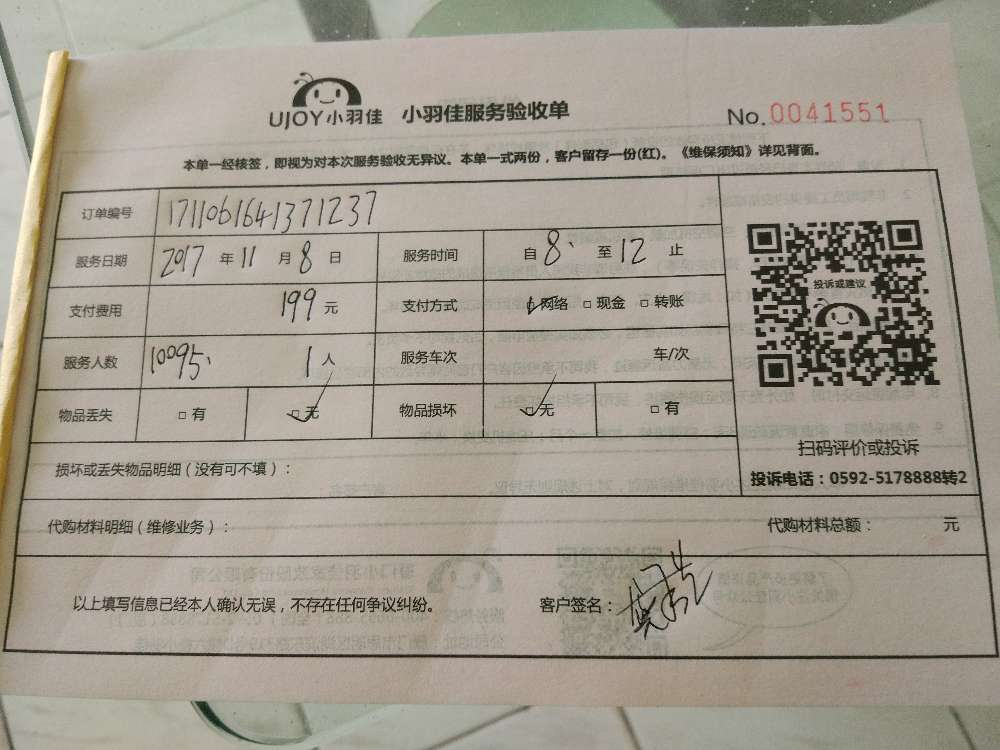 UJOY小羽佳 小羽佳服务验收单 No.0041551
本单一经核签，即视为对本次服务验收无异议。本单一式两份，客户留存一份(红)。《维保须知》详见背面。
订单编号 1711061641371237
服务日期 2017 年 11 月 8 日 服务时间 自 8 至 12 止
支付费用 199 元 支付方式 ☑网络 □现金 □转账
服务人数 10095 1 人 服务车次 车/次
物品丢失 □有 ☑无 物品损坏 ☑无 □有
投诉或建议
扫码评价或投诉
投诉电话：0592-5178888转2
损坏或丢失物品明细（没有可不填）：
代购材料明细（维修业务）： 代购材料总额： 元
以上填写信息已经本人确认无误，不存在任何争议纠纷。 客户签名：